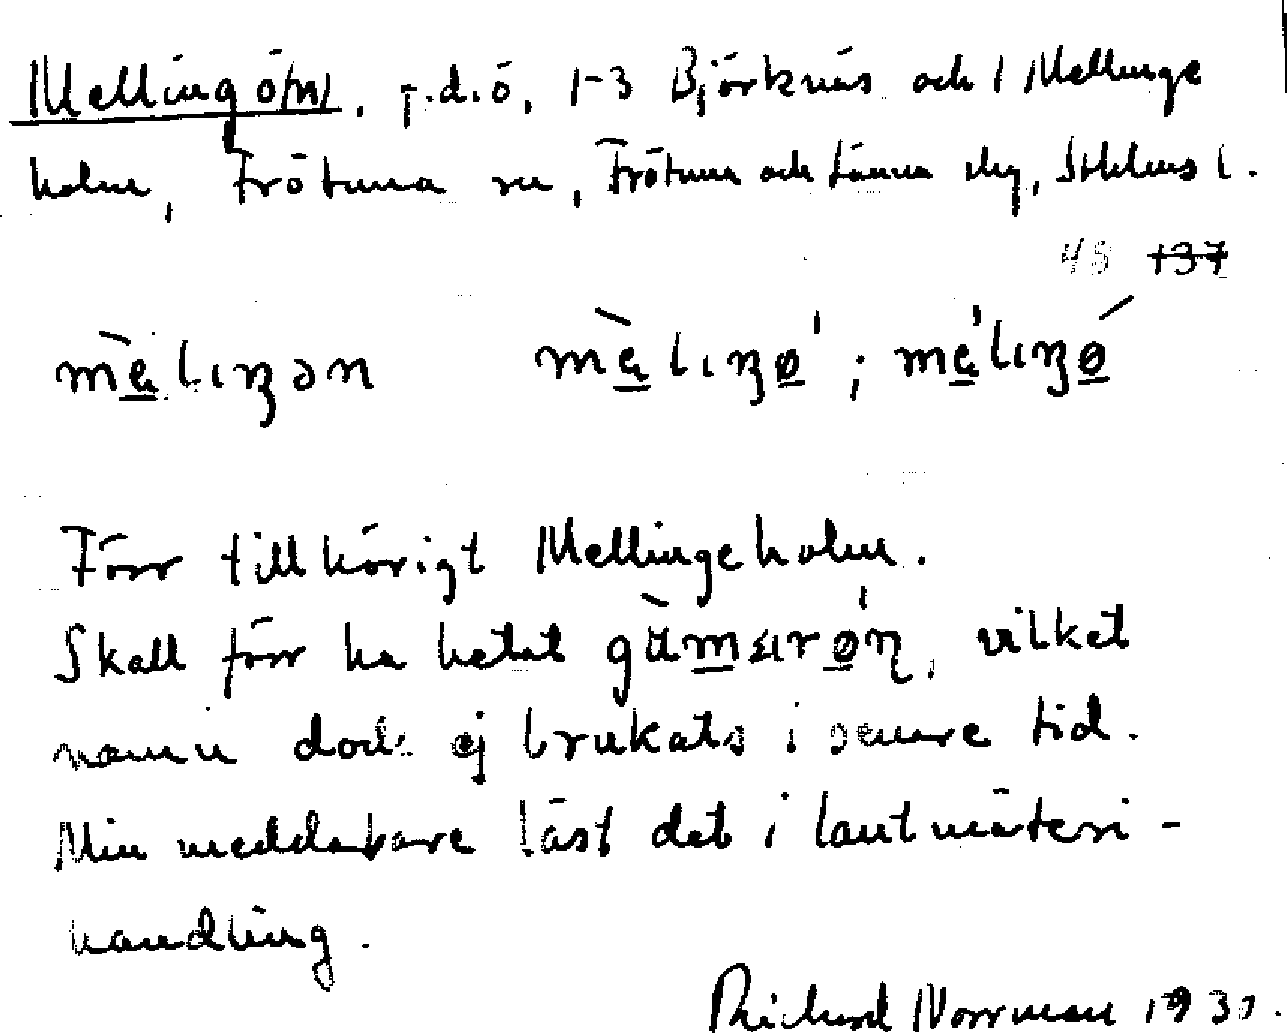 Mellingö(n), f.d.ö, 1-3 Björknäs och 1 Mellinge
holm, Frötuna sn, Frötuna och Länna skg, Sthlms l.
48 137
mèlıŋən mèlıŋø'; mèlıŋǿ
Förr tillhörigt Mellingeholm.
Skall förr ha hetat vilket
namn dock ej brukats i senare tid.
Min meddelare läst det i lantmäteri-
handling.
Richard Norrman